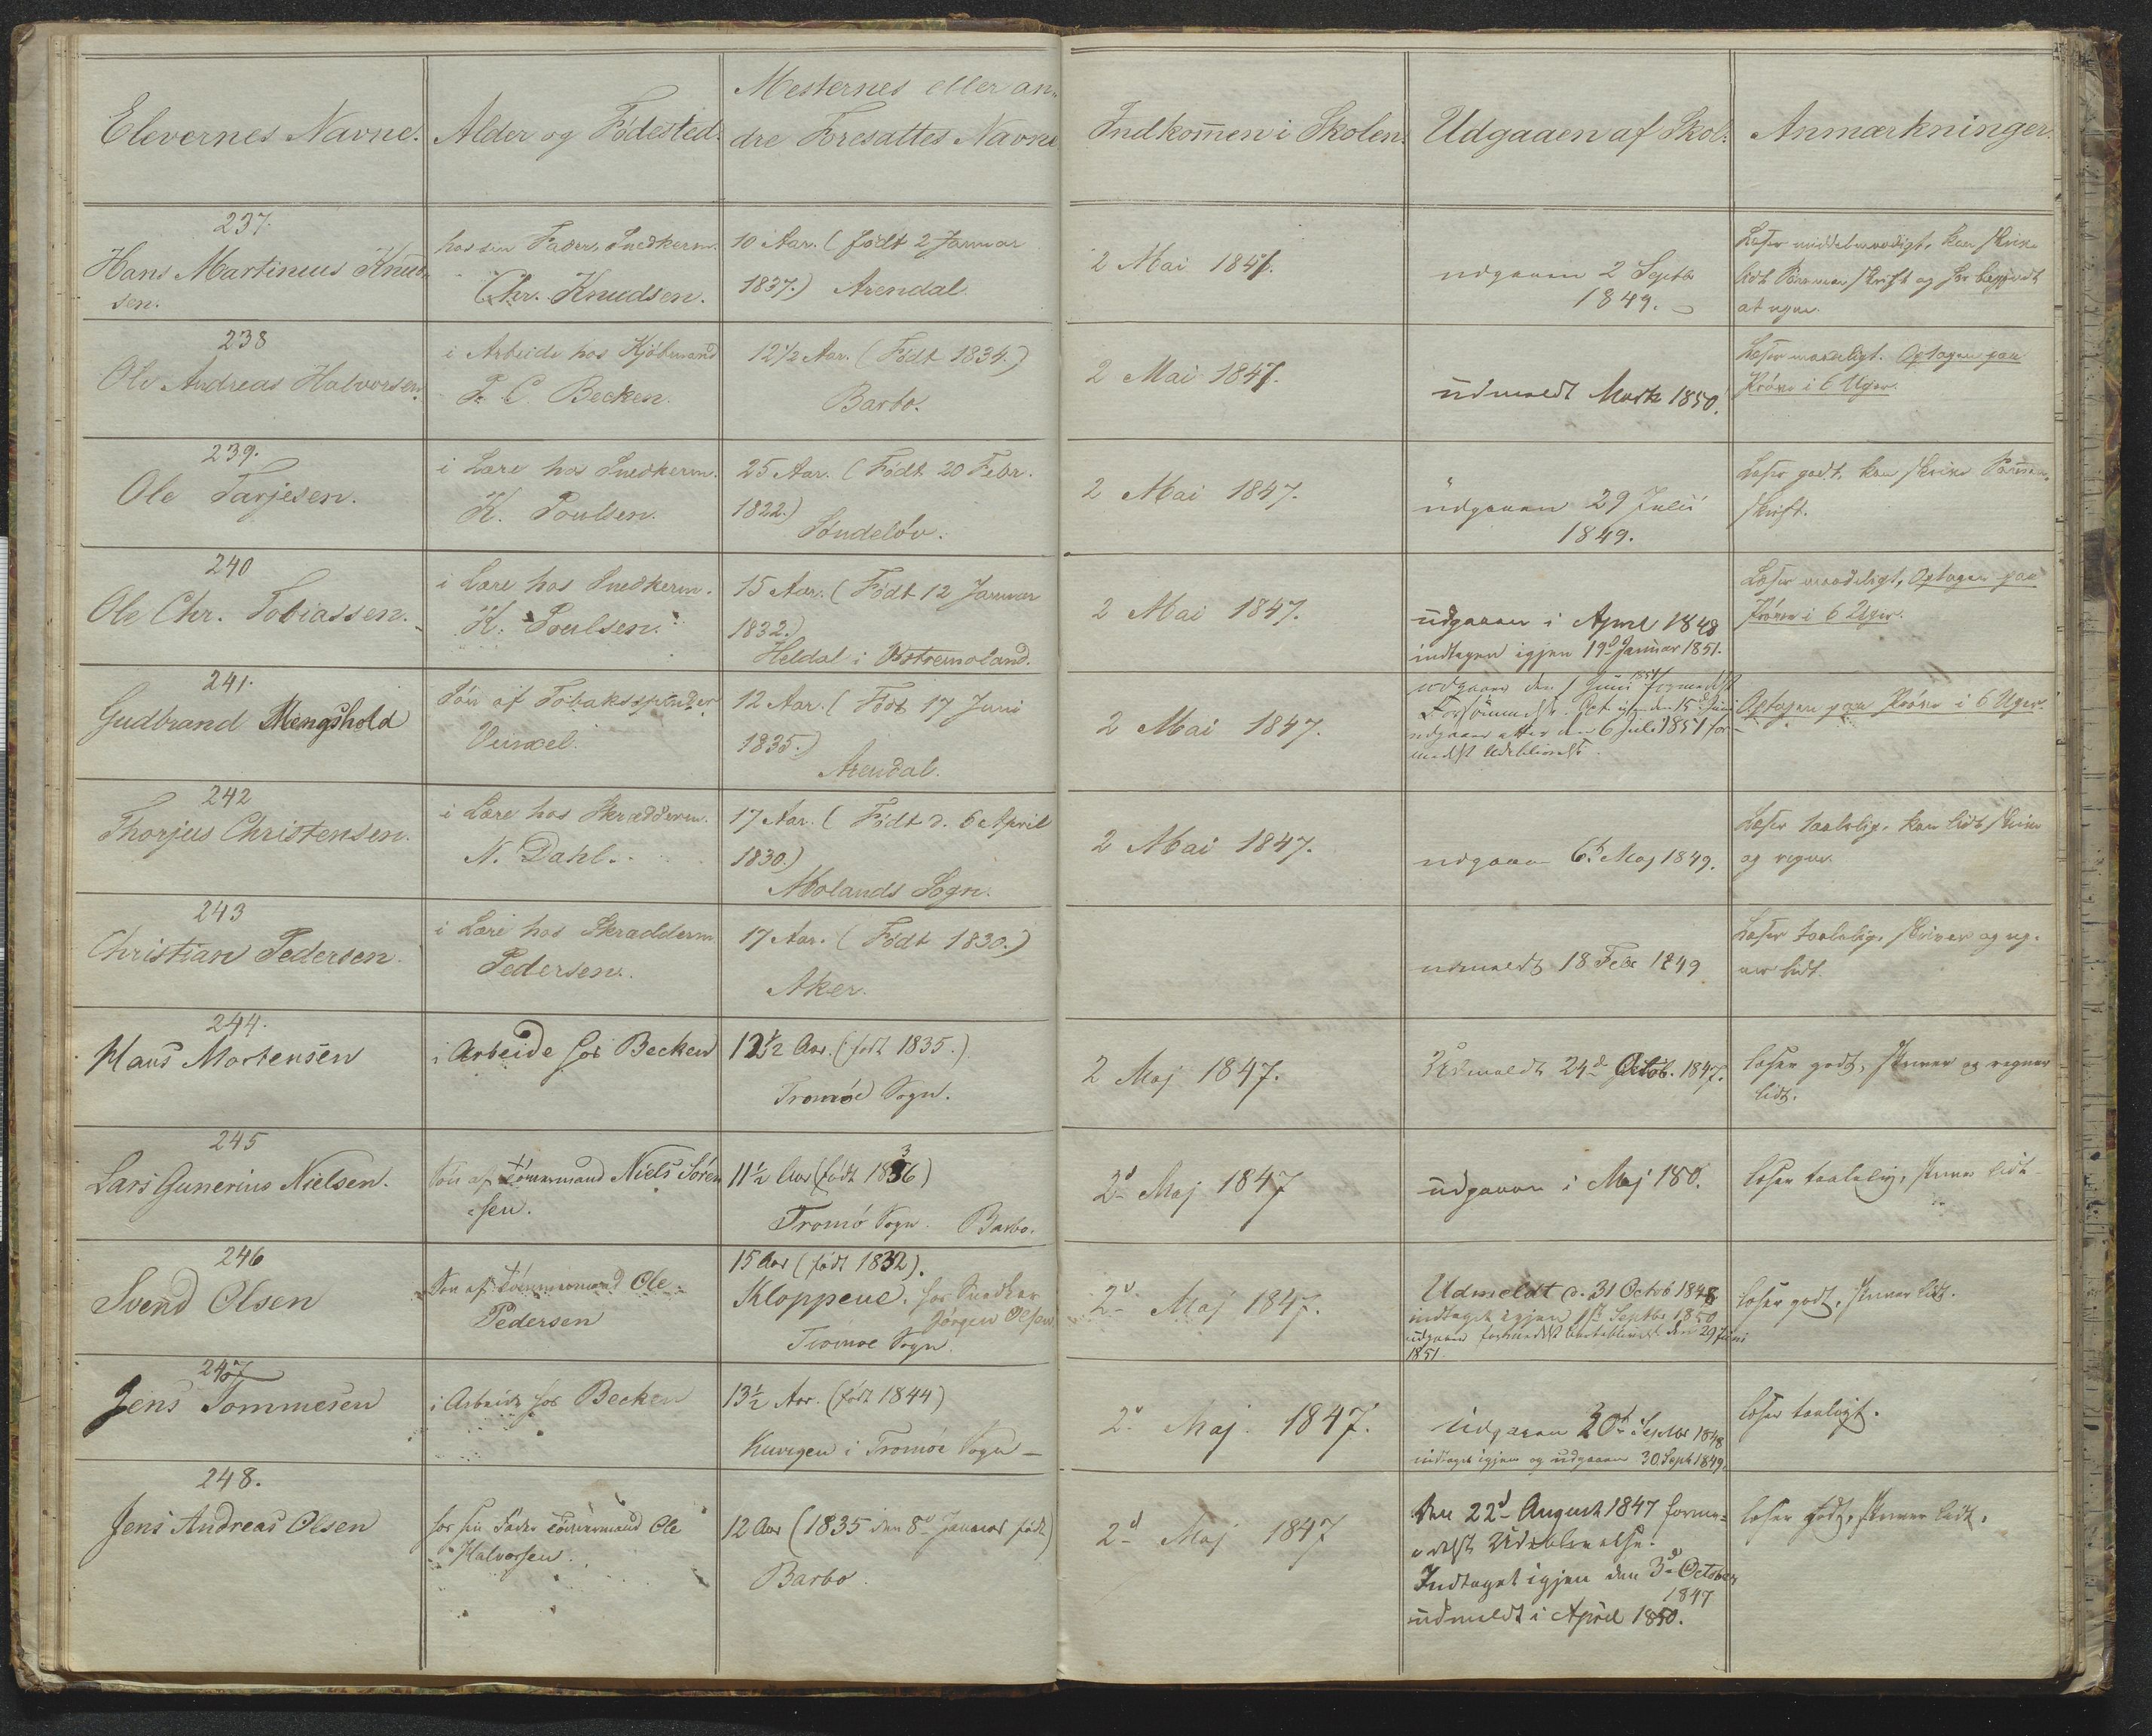 Elevernes Navne.
Alder og Födested.
Mesternes eller an-
dre Foresattes Navne
Indkom̄en i Skolen.
Udgaaen af Skol.
Anmærkninger.
237.
Hans Martinius Knud-
sen.
hos sin Fader, Snedkerm.
Chr. Knudsen.
10 Aar. (födt 2 Januar
1837.) Arendal.
2 Mai 1847.
udgaaen 2 Septbr
1849.
Læser middelmaadigt, kan skrive
lidt Sammenskrift og har begyndt
at regne.
238
Ole Andreas Halvorsen.
i Arbeide hos Kjöbmand
P. C. Becken.
12 1/2 Aar. (Födt 1834.)
Barbo.
2 Mai 1847.
udmeldt Marts 1850.
Læser maadeligt. Optagen paa
Pröve i 6 Uger.
239.
Ole Tarjesen.
i Lære hos Snedkerm.
K. Poulsen.
25 Aar. (Födt 20 Febr.
1822.)
Söndelöv.
2 Mai 1847.
udgaaen 29 Juli
1849.
Læser godt, kan skrive Sammen-
skrift.
240
Ole Chr. Tobiassen.
i Lære hos Snedkerm.
K. Poulsen.
15 Aar. (Födt 12 Januar
1832.)
Heldal i Östremoland.
2 Mai 1847.
udgaaen i April 1848
indtagen igjen 19d Januar 1851.
Læser maadeligt, Optagen paa
Pröve i 6 Uger.
241.
Gudbrand Mengshold
Sön af Tobaksspinder
Veumel.
12 Aar. (Födt 17 Juni
1835.)
Arendal.
2 Mai 1847.
udgaaen den 1 Juni 1851 formedelst
Forsömmelse. igjen den 15d Juni
udgaaen atter den 6 Juli 1851 for-
medelst Udeblivelse.
Optagen paa Pröve i 6 Uger.
242
Thorjus Christensen.
i Lære hos Skrædderm.
N. Dahl.
17 Aar. (Födt d. 6 April
1830.)
Molands Sogn.
2 Mai 1847.
udgaaen 6d Maj 1849.
Læser taalelig, kan lidt skrive
og regne.
243
Christian Pedersen.
i Lære hos Skrædderm
Pedersen.
17 Aar. (Födt 1830.)
Aker.
udmeldt 18 Febr 1849
Læser taalelig, skriver og reg-
ner lidt.
244.
Hans Mortensen
i Arbeide hos Becken
12 1/2 Aar. (födt 1835.)
Tromöe Sogn.
2 Maj 1847.
Udmeldt 24d Octob. 1847.
læser godt, skriver og regner
lidt.
245
Lars Gunerius Nielsen.
Sön af Tömmermand Niels Sören-
sen.
11 1/2 Aar (födt 1836)
Tromö Sogn. Barbo.
2d Maj 1847
udgaaen i Maj 180.
læser taalelig, skriver lidt
246
Svend Olsen
Sön af Tömmermand Ole
Pedersen
15 Aar (födt 1832).
Kloppene. hos Snedker
Jörgen Olsen
Tromoe Sogn.
2d Maj 1847.
Udmeldt d. 31 Octob 1848
indtaget igjen 1ste Septbr 1850
udgaaen formedelst Udeblivelse den 29 Juni
1851.
læser godt, skriver lidt.
247
Jens Tommesen
i Arbeide hos Becken
13 1/2 Aar. (födt 1844)
Kuvigen i Tromöe Sogn
2d Maj 1847.
Udgaaen 30d Septbr 1848
indtaget igjen og udgaaen 30. Sept 1849.
læser taaligt.
248.
Jens Andreas Olsen
hos sin Fader Tömmermand Ole
Halvorsen.
12 Aar (1835 den 8d Januar födt)
Barbo.
2d Maj 1847
den 22d August 1847 forme-
delst Udeblivelse.
Indtaget igjen den 3d October
1847
udmeldt i April 1850.
læser godt, skriver lidt.